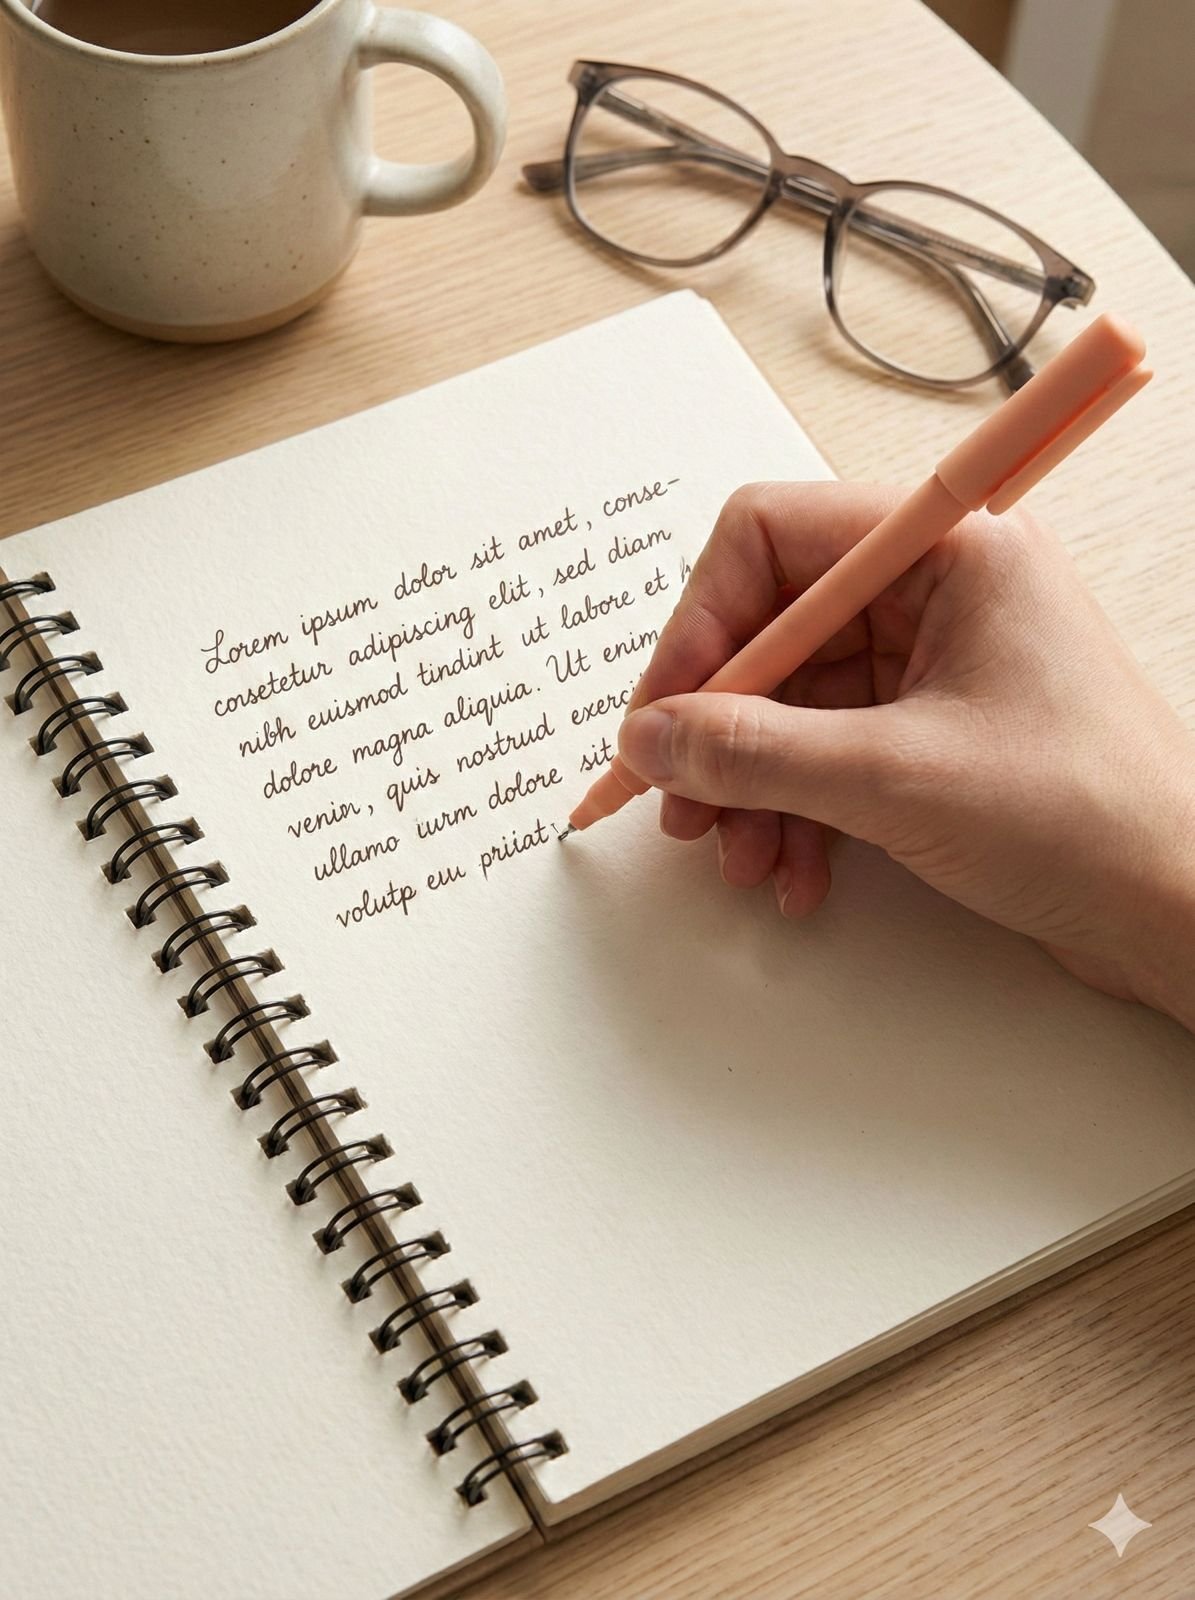 Lorem ipsum dolor sit amet, conse-
consetetur adipiscing elit, sed diam
nibh euismod tindint ut labore et
dolore magna aliquia. Ut enim
venin, quis nostrud exerci
ullamo iurm dolore sit
volutp euu priiat